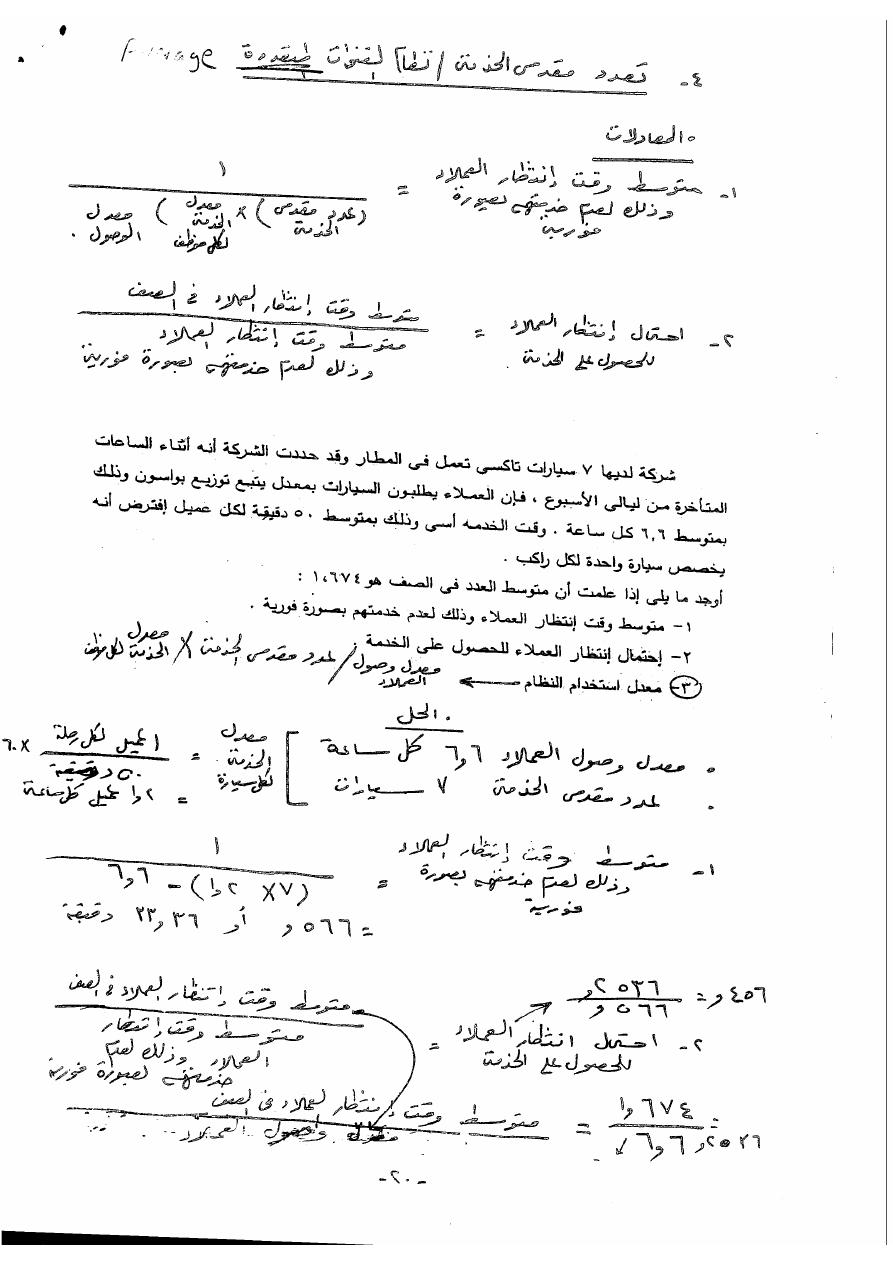 ٤- تعدد مقدمى الخدمة / نظام القنوات المتعددة
المعادلات
١- متوسط وقت إنتظار العملاء وذلك لعدم خدمتهم بصورة فورية = ١ / (عدد مقدمى الخدمة) × (معدل الخدمة لكل موظف) معدل الوصول .
٢- احتمال إنتظار العملاء للحصول على الخدمة = متوسط وقت إنتظار العملاء فى الصف / متوسط وقت إنتظار العملاء وذلك لعدم خدمتهم بصورة فورية
شركة لديها ٧ سيارات تاكسى تعمل فى المطار وقد حددت الشركة أنه أثناء الساعات
المتأخرة من ليالى الأسبوع ، فإن العملاء يطلبون السيارات بمعدل يتبع توزيع بواسون وذلك
بمتوسط ٦,٦ كل ساعة . وقت الخدمه أسى وذلك بمتوسط ٥٠ دقيقة لكل عميل إفترض أنه
يخصص سيارة واحدة لكل راكب .
أوجد ما يلى إذا علمت أن متوسط العدد فى الصف هو ١,٦٧٤ :
١- متوسط وقت إنتظار العملاء وذلك لعدم خدمتهم بصورة فورية .
٢- إحتمال إنتظار العملاء للحصول على الخدمة
٣- معدل استخدام النظام ← معدل وصول العملاء / عدد مقدمى الخدمة × معدل الخدمة لكل موظف
الحل
معدل وصول العملاء ٦,٦ كل ساعة
عدد مقدمى الخدمة ٧ سيارات
معدل الخدمة لكل سيارة = ١ عميل لكل رحلة / ٥٠ دقيقة × ٦٠
= ١,٢ عميل كل ساعة
١- متوسط وقت إنتظار العملاء وذلك لعدم خدمتهم بصورة فورية = ١ / (٧ × ١,٢) - ٦,٦
= ٥٦٦, أو ٣٣,٣٦ دقيقة
٢- احتمال انتظار العملاء للحصول على الخدمة = متوسط وقت إنتظار العملاء فى الصف / متوسط وقت إنتظار العملاء وذلك لعدم خدمتهم بصورة فورية
٢٥٣٦, / ٥٦٦, = ٤٥٦,
متوسط وقت إنتظار العملاء فى الصف / معدل وصول العملاء = ١,٦٧٤ / ٦,٦ = ٢٥٣٦,
-٢٠-